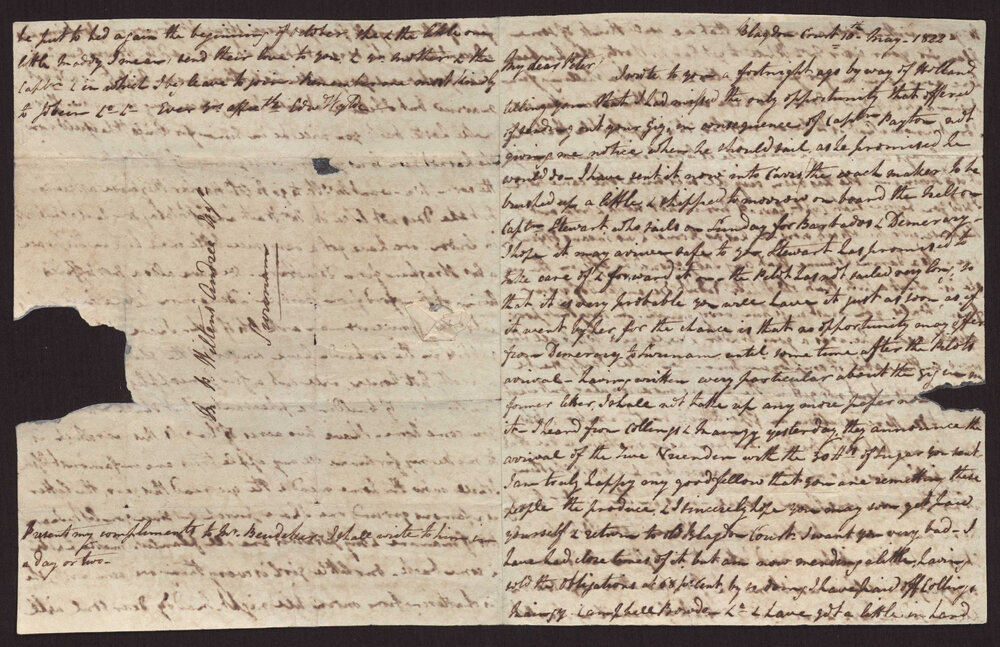 Blagdon Court 10th May - 1822
My dear Peter
I wrote to you a fortnight ago by way of Holland
telling you that I had missed the only opportunity that offered
of sending out your Gig, in consequence of Captn Bayton not
giving me notice when he should sail, as he promised he
would do - I have sent it now into the coach maker to be
brushed up a little & shipped tomorrow on board the
Captn Stewart who sails on Sunday for Barbados & Demerary -
I hope it may arrive safe to you, Stewart has promised to
take care of & forward it on - the Pilot has not sailed very long, so
that it is very probable you will have it just as soon as if
it went by her, for the chance is that no opportunity may offer
from Demerary to Surinam until some time after the Pilots
arrival - having written very particular about the Gig in my
former letter, I shall not take up any more paper
it - I heard from Collings & Maingy yesterday, they announce the
arrival of the Twee Vrienden with the 30 Hds of Sugar you sent
I am truly happy my good fellow that you are remitting these
people the produce, & I sincerely hope you may soon get paid
yourself & return to old Blagdon Court. I want you very bad - I
have had close times of it but am now mending a little, having
sold the Obligations at 68 pr Cent, by so doing I have paid off Collings
Maingy & Campbell Bowden & Co & have got a little in hand
be put to bed again the beginning of October. She & the little one
little Maddy I mean, send their love to you & yr mother & the
Captn & in which I beg leave to join. Remember me most kindly
to &c &c Ever yrs affectly Edw
P. R. Wilkens Andreæ Esqr
Surinam
Present my compliments to Mr. I shall write to him in
a day or two -